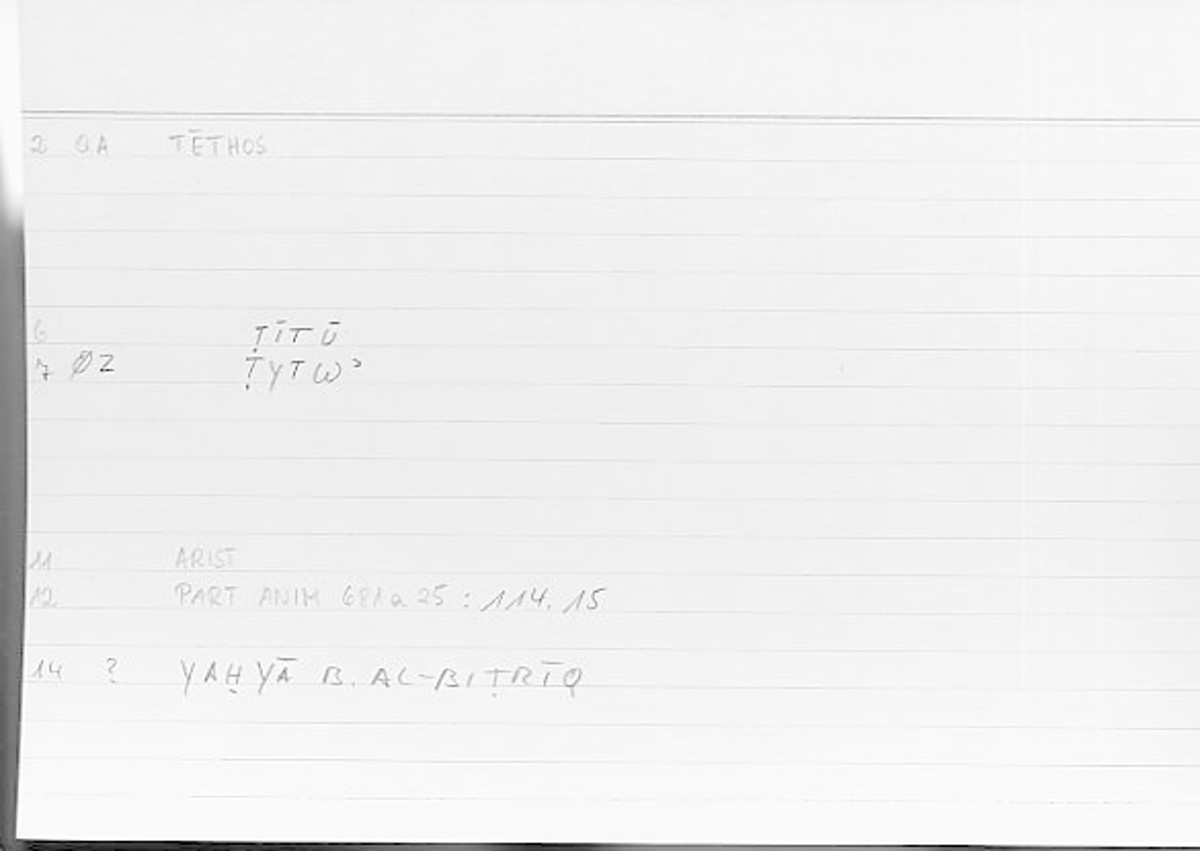 2 QA TĒTHOS
6 ṬĪTŪ
7 ØZ ṬYTWʾ
11 ARIST
12 PART ANIM 681a 25 : 114.15
14 ? YAḤYĀ B. AL-BIṬRĪQ